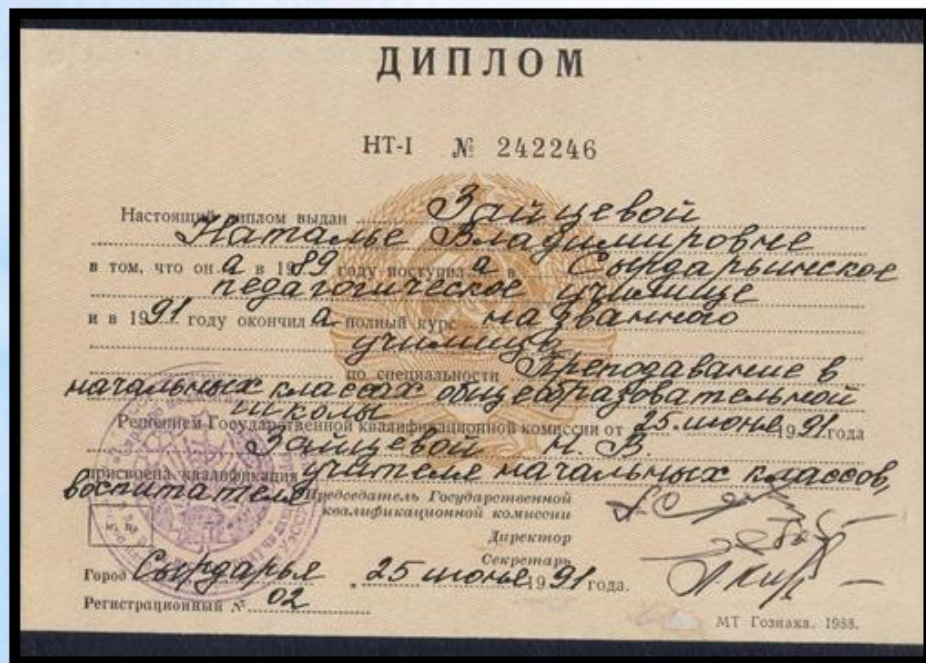 ДИПЛОМ
НТ-I № 242246
Настоящий диплом выдан Зайцевой
Наталье Владимировне
в том, что он а в 1989 году поступил а в Сырдарьинское
педагогическое училище
и в 1991 году окончил а полный курс названного
училища
по специальности Преподавание в
начальных классах общеобразовательной
школы
Решением Государственной квалификационной комиссии от 25 июня 1991 года
Зайцевой Н. В.
присвоена квалификация учителя начальных классов,
воспитателя
Председатель Государственной
квалификационной комиссии
Директор
Секретарь
Город Сырдарья „ 25 июня 1991 года.
Регистрационный № 02
МТ Гознака. 1988.